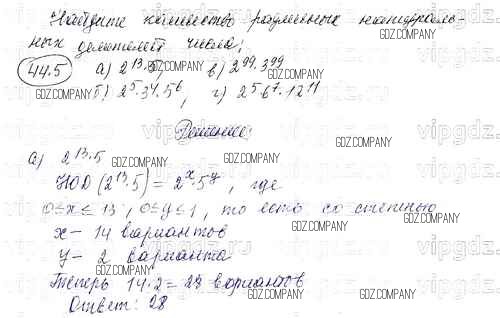 Найдите количество различных натураль-
ных делителей числа:
44.5 а) 2¹³·5; в) 2⁹⁹·3⁹⁹
б) 2⁵·3⁴·5⁶; г) 2⁵6⁷·12¹¹
Решение:
а) 2¹³·5
НОД (2¹³·5) = 2ˣ·5ʸ, где
0≤x≤13, 0≤y≤1, то есть со степенью
x – 14 вариантов
y – 2 варианта
Теперь 14·2=28 вариантов
Ответ: 28